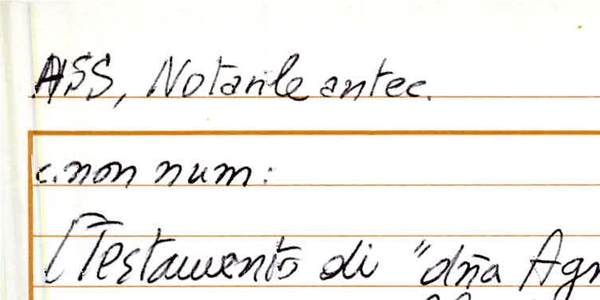 ASS, Notarile antec.
c. non num:
[Testamento di "dña Agn